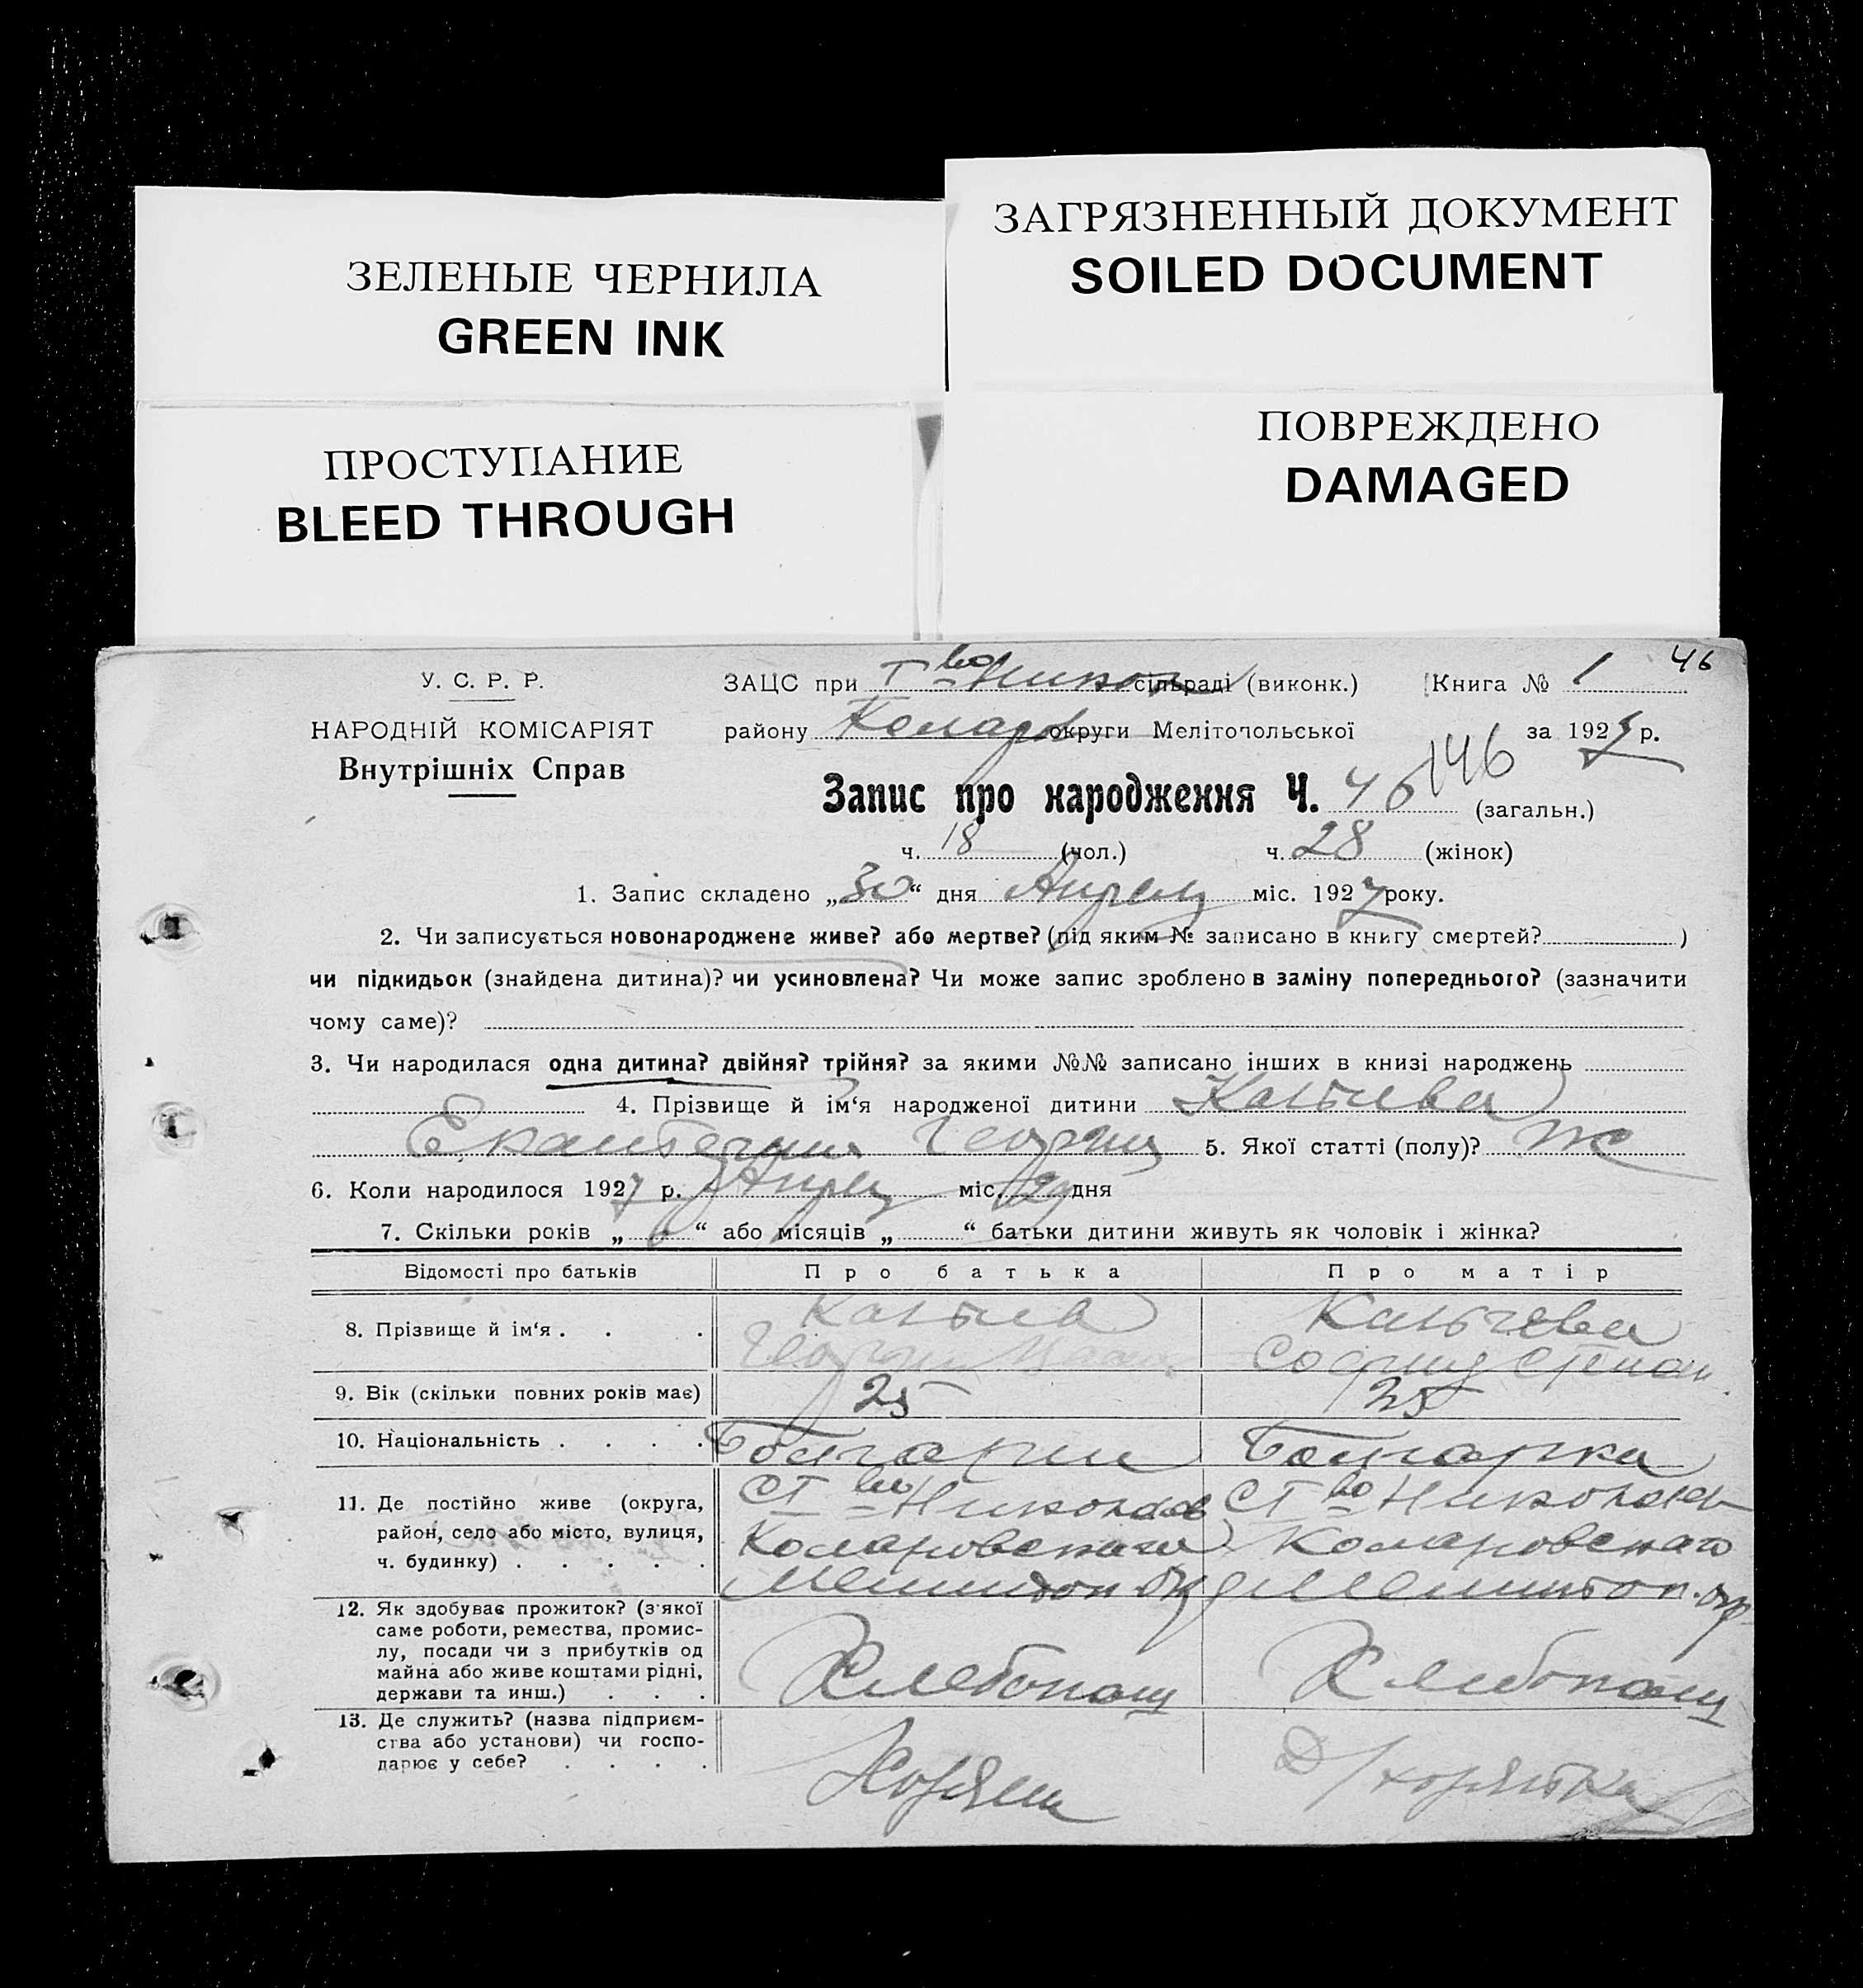 ЗЕЛЕНЫЕ ЧЕРНИЛА
GREEN INK
ЗАГРЯЗНЕННЫЙ ДОКУМЕНТ
SOILED DOCUMENT
ПРОСТУПАНИЕ
BLEED THROUGH
ПОВРЕЖДЕНО
DAMAGED
46
У. С. Р. Р.
НАРОДНІЙ КОМІСАРІЯТ
Внутрішніх Справ
ЗАЦС при сільраді (виконк.) Книга № 1
району Комар округи Мелітопольської за 1927 р.
Запис про народження Ч. 46 146 (загальн.)
ч. 18 (чол.) ч. 28 (жінок)
1. Запис складено „30“ дня Апреля міс. 1927 року.
2. Чи записується новонароджене живе? або мертве? (під яким № записано в книгу смертей? )
чи підкидьок (знайдена дитина)? чи усиновлена? Чи може запис зроблено в заміну попереднього? (зазначити
чому саме)?
3. Чи народилася одна дитина? двійня? трійня? за якими №№ записано інших в книзі народжень
4. Прізвище й ім‘я народженої дитини
Екатерина Георги 5. Якої статті (полу)? ж
6. Коли народилося 1927 р. Апрел міс. 29 дня
7. Скільки років „ “ або місяців „ “ батьки дитини живуть як чоловік і жінка?
Відомості про батьків Про батька Про матір
8. Прізвище й ім‘я . . .
Георги Кальчева
София Степан
9. Вік (скільки повних років має) 25 25
10. Національність . . . . Болгарин Болгарка
11. Де постійно живе (округа,
район, село або місто, вулиця,
ч. будинку) . . . . .
Ст во Николаев Ст во Николаев
Комаровскаго Комаровскаго
Мелитоп окр Мелитоп. окр
12. Як здобуває прожиток? (з якої
саме роботи, ремества, промис-
лу, посади чи з прибутків од
майна або живе коштами рідні,
держави та инш.) . . .
Хлебопащ Хлебопащ
13. Де служить? (назва підприєм-
ства або установи) чи госпо-
дарює у себе? . . . .